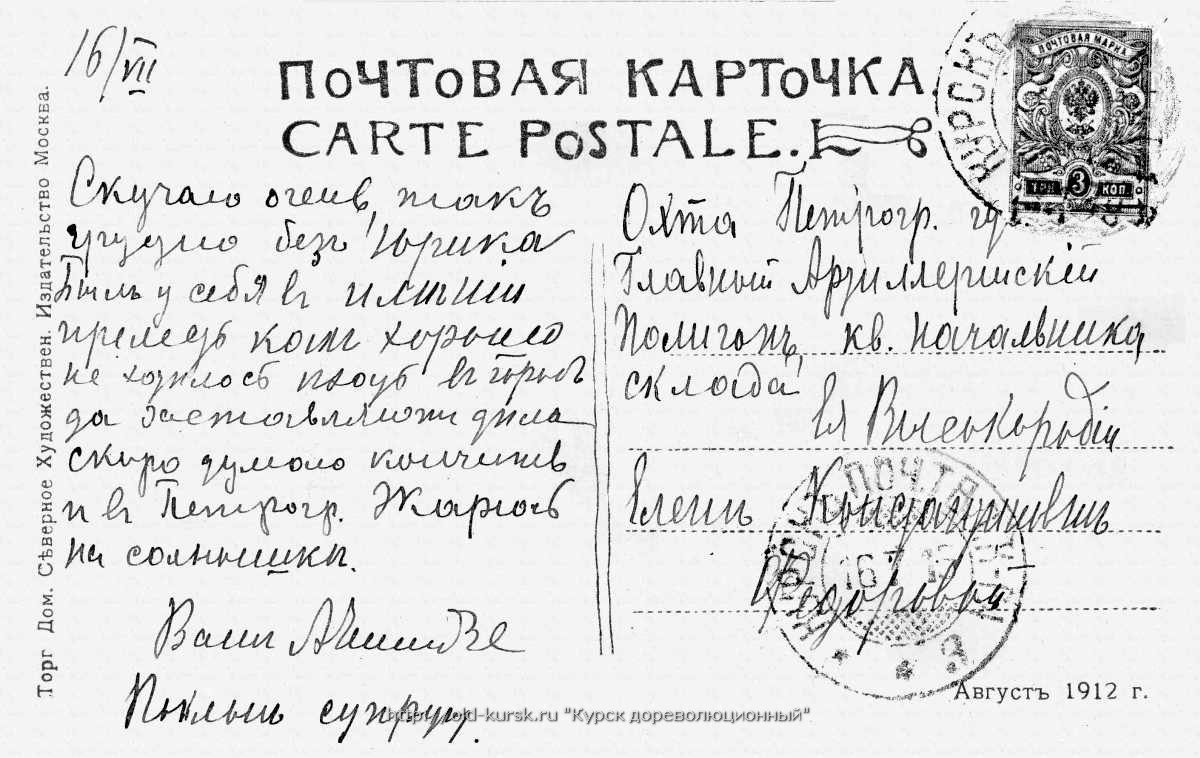 16/VII
ПОЧТОВАЯ КАРТОЧКА
CARTE POSTALE.
Торг Дом. Сѣверное Художествен. Издательство Москва.
Скучаю очень, такъ
трудно безъ Юрика
Былъ у себя въ имѣніи
прелесть какъ хорошо
не хотѣлось ѣхать въ городъ
да заставляютъ дѣла
скоро думаю кончить
и въ Петрогр. Жарюсь
на солнышкѣ.
Вашъ
Поклонъ супругу.
КУРСКЪ
ПОЧТОВАЯ МАРКА
ТРИ 3 КОП
Охта Петрогр. гу
Главный Артиллерійскій
Полигонъ, кв. начальника
склада
Ея Высокородію
Еленѣ Константиновнѣ
Федоровой
ПОЧТ
16 7 15
3
Августъ 1912 г.
http://old-kursk.ru "Курск дореволюционный"